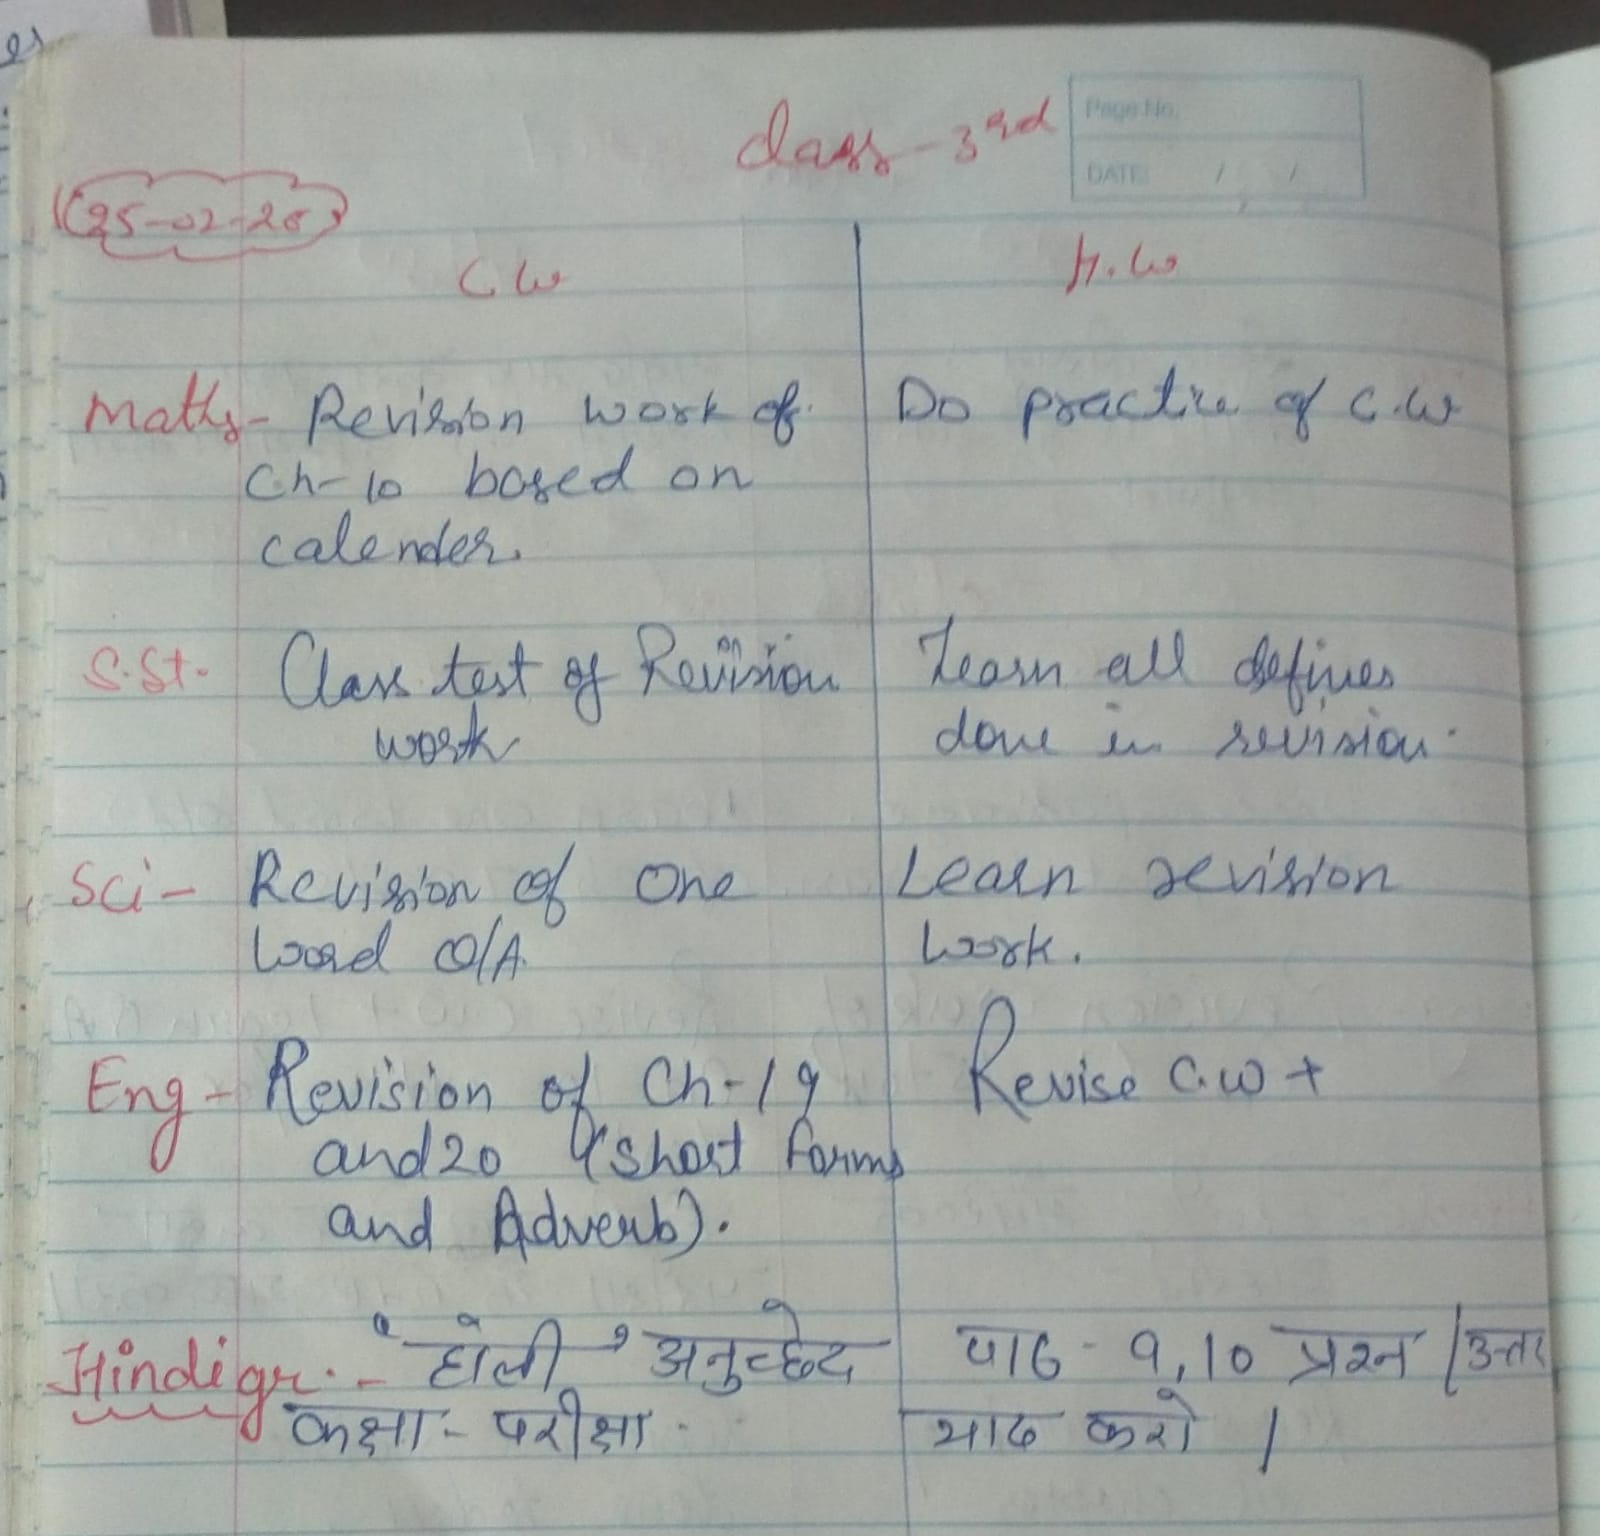 class - 3rd
Page No.
DATE: / /
25-02-26
C.W
H.W
Maths- Revision work of
Do practice of C.W
Ch-10 based on
calender.
S.St- Class test of Revision
Learn all defines
work
done in revision.
Sci- Revision of One
Learn revision
word Q/A
work.
Eng- Revision of Ch-19
Revise C.W +
and 20 (short forms
and Adverb).
Hindi gr. - "होली" अनुच्छेद
पाठ - 9,10 प्रश्न/उत्तर
कक्षा - परीक्षा
याद करो।